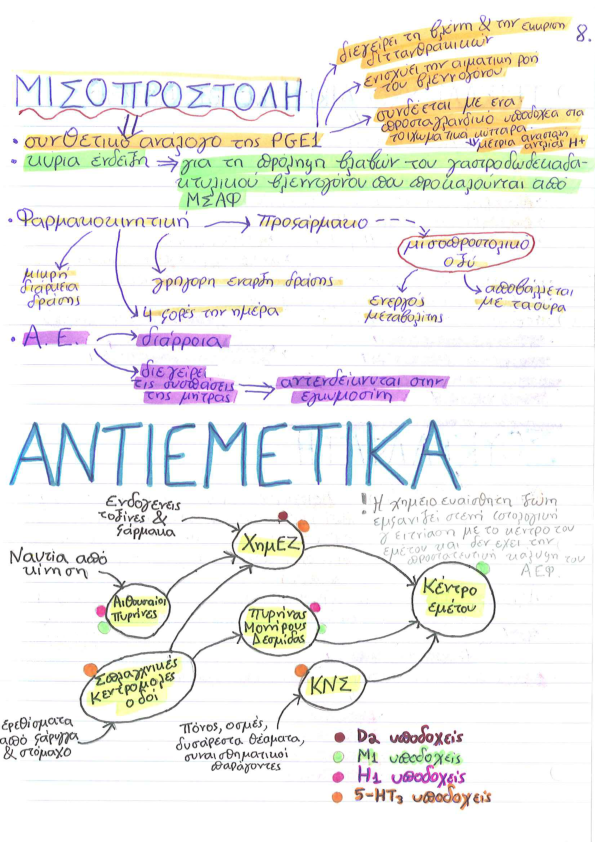 8.
διεγείρει τη βλέννη & την έκκριση
διττανθρακικών
ενισχύει την αιματική ροή
του βλεννογόνου
ΜΙΣΟΠΡΟΣΤΟΛΗ
συνδέεται με ένα
προσταγλανδικό υποδοχέα στα
τοιχωματικά κύτταρα
μέτρια αναστολή
αντλίας H+
• συνθετικό ανάλογο της PGE1
• κύρια ένδειξη ⇒ για τη πρόληψη βλαβών του γαστροδωδεκαδα-
κτυλικού βλεννογόνου που προκαλούνται από
ΜΣΑΦ
• Φαρμακοκινητική → προφάρμακο
μισοπροστολικό
οξύ
μικρή
διάρκεια
δράσης
γρήγορη έναρξη δράσης
4 φορές την ημέρα
ενεργός
μεταβολίτης
αποβάλλεται
με τα ούρα
• Α.Ε. → διάρροια
διεγείρει
τις συσπάσεις
της μήτρας
⇒ αντενδείκνυται στην
εγκυμοσύνη
ΑΝΤΙΕΜΕΤΙΚΑ
Ενδογενείς
τοξίνες &
φάρμακα
ΧημΕΖ
! Η χημειοευαίσθητη ζώνη
εμφανίζει στενή ιστολογική
γειτνίαση με το κέντρο του
εμέτου και δεν έχει την
προστατευτική κάλυψη του
ΑΕΦ.
Ναυτία από
κίνηση
Αιθουσαίοι
Πυρήνες
Πυρήνας
Μονήρους
Δεσμίδας
Κέντρο
εμέτου
Σπλαγχνικές
Κεντρομόλες
οδοί
ΚΝΣ
ερεθίσματα
από φάρυγγα
& στόμαχο
Πόνος, οσμές,
δυσάρεστα θέαματα,
συναισθηματικοί
παράγοντες
D2 υποδοχείς
M1 υποδοχείς
H1 υποδοχείς
5-HT3 υποδοχείς